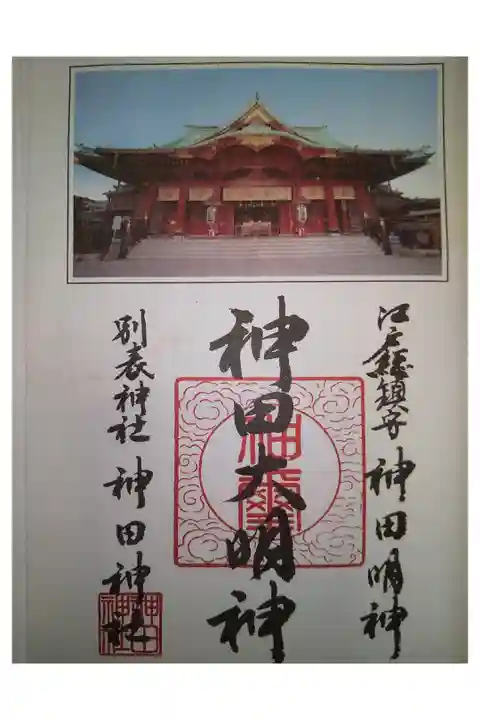 江戸総鎮守 神田明神
神田大明神
神璽
別表神社 神田神社
神田
神社